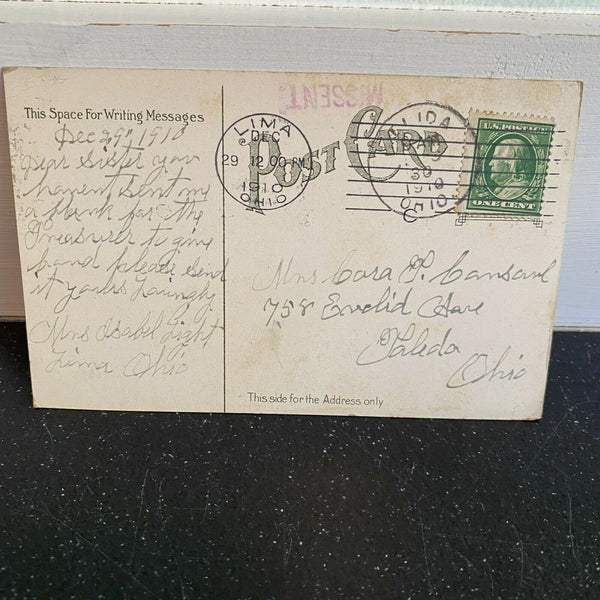 This Space For Writing Messages
Dec 29th 1910
Dear Sister you
havent sent me
a blank for the
Treasurer to give
bond please send
it yours Lovingly
Mrs Isabel Light
Lima Ohio
MISSENT
POST CARD
LIMA
DEC
29 12.00 PM
1910
OHIO
LIDA
30
1910
OHIO
U.S. POSTAGE
ONE CENT
Mrs Cora P.
758 Euclid Ave
Toledo
Ohio
This side for the Address only